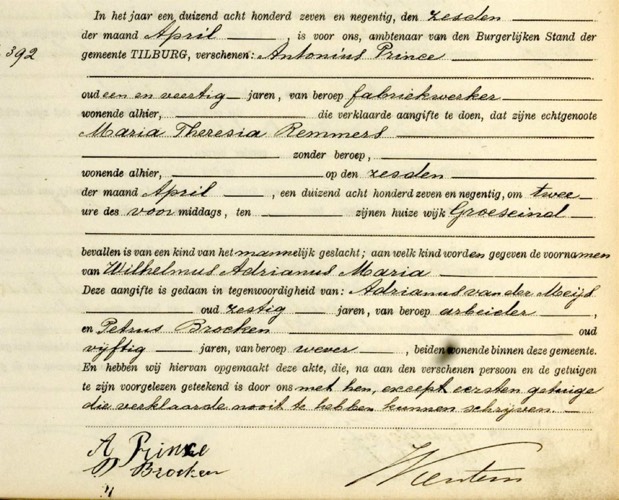 In het jaar een duizend acht honderd zeven en negentig, den zesden
der maand April, is voor ons, ambtenaar van den Burgerlijken Stand der
392
gemeente TILBURG, verschenen: Antonius Prince
oud een en veertig jaren, van beroep fabriekwerker
wonende alhier, die verklaarde aangifte te doen, dat zijne echtgenoote
Maria Theresia Remmers
zonder beroep,
wonende alhier, op den zesden
der maand April, een duizend acht honderd zeven en negentig, om twee
ure des voormiddags, ten zijnen huize wijk Groeseind
bevallen is van een kind van het mannelijk geslacht; aan welk kind worden gegeven de voornamen
van Wilhelmus Adrianus Maria
Deze aangifte is gedaan in tegenwoordigheid van: Adrianus van der Meijs
, oud zestig jaren, van beroep arbeider,
en Petrus Brocken oud
vijftig jaren, van beroep wever, beiden wonende binnen deze gemeente.
En hebben wij hiervan opgemaakt deze akte, die, na aan den verschenen persoon en de getuigen
te zijn voorgelezen geteekend is door ons met hen, except eersten getuige
die verklaarde nooit te hebben kunnen schrijven.
A Prince
P Brocken